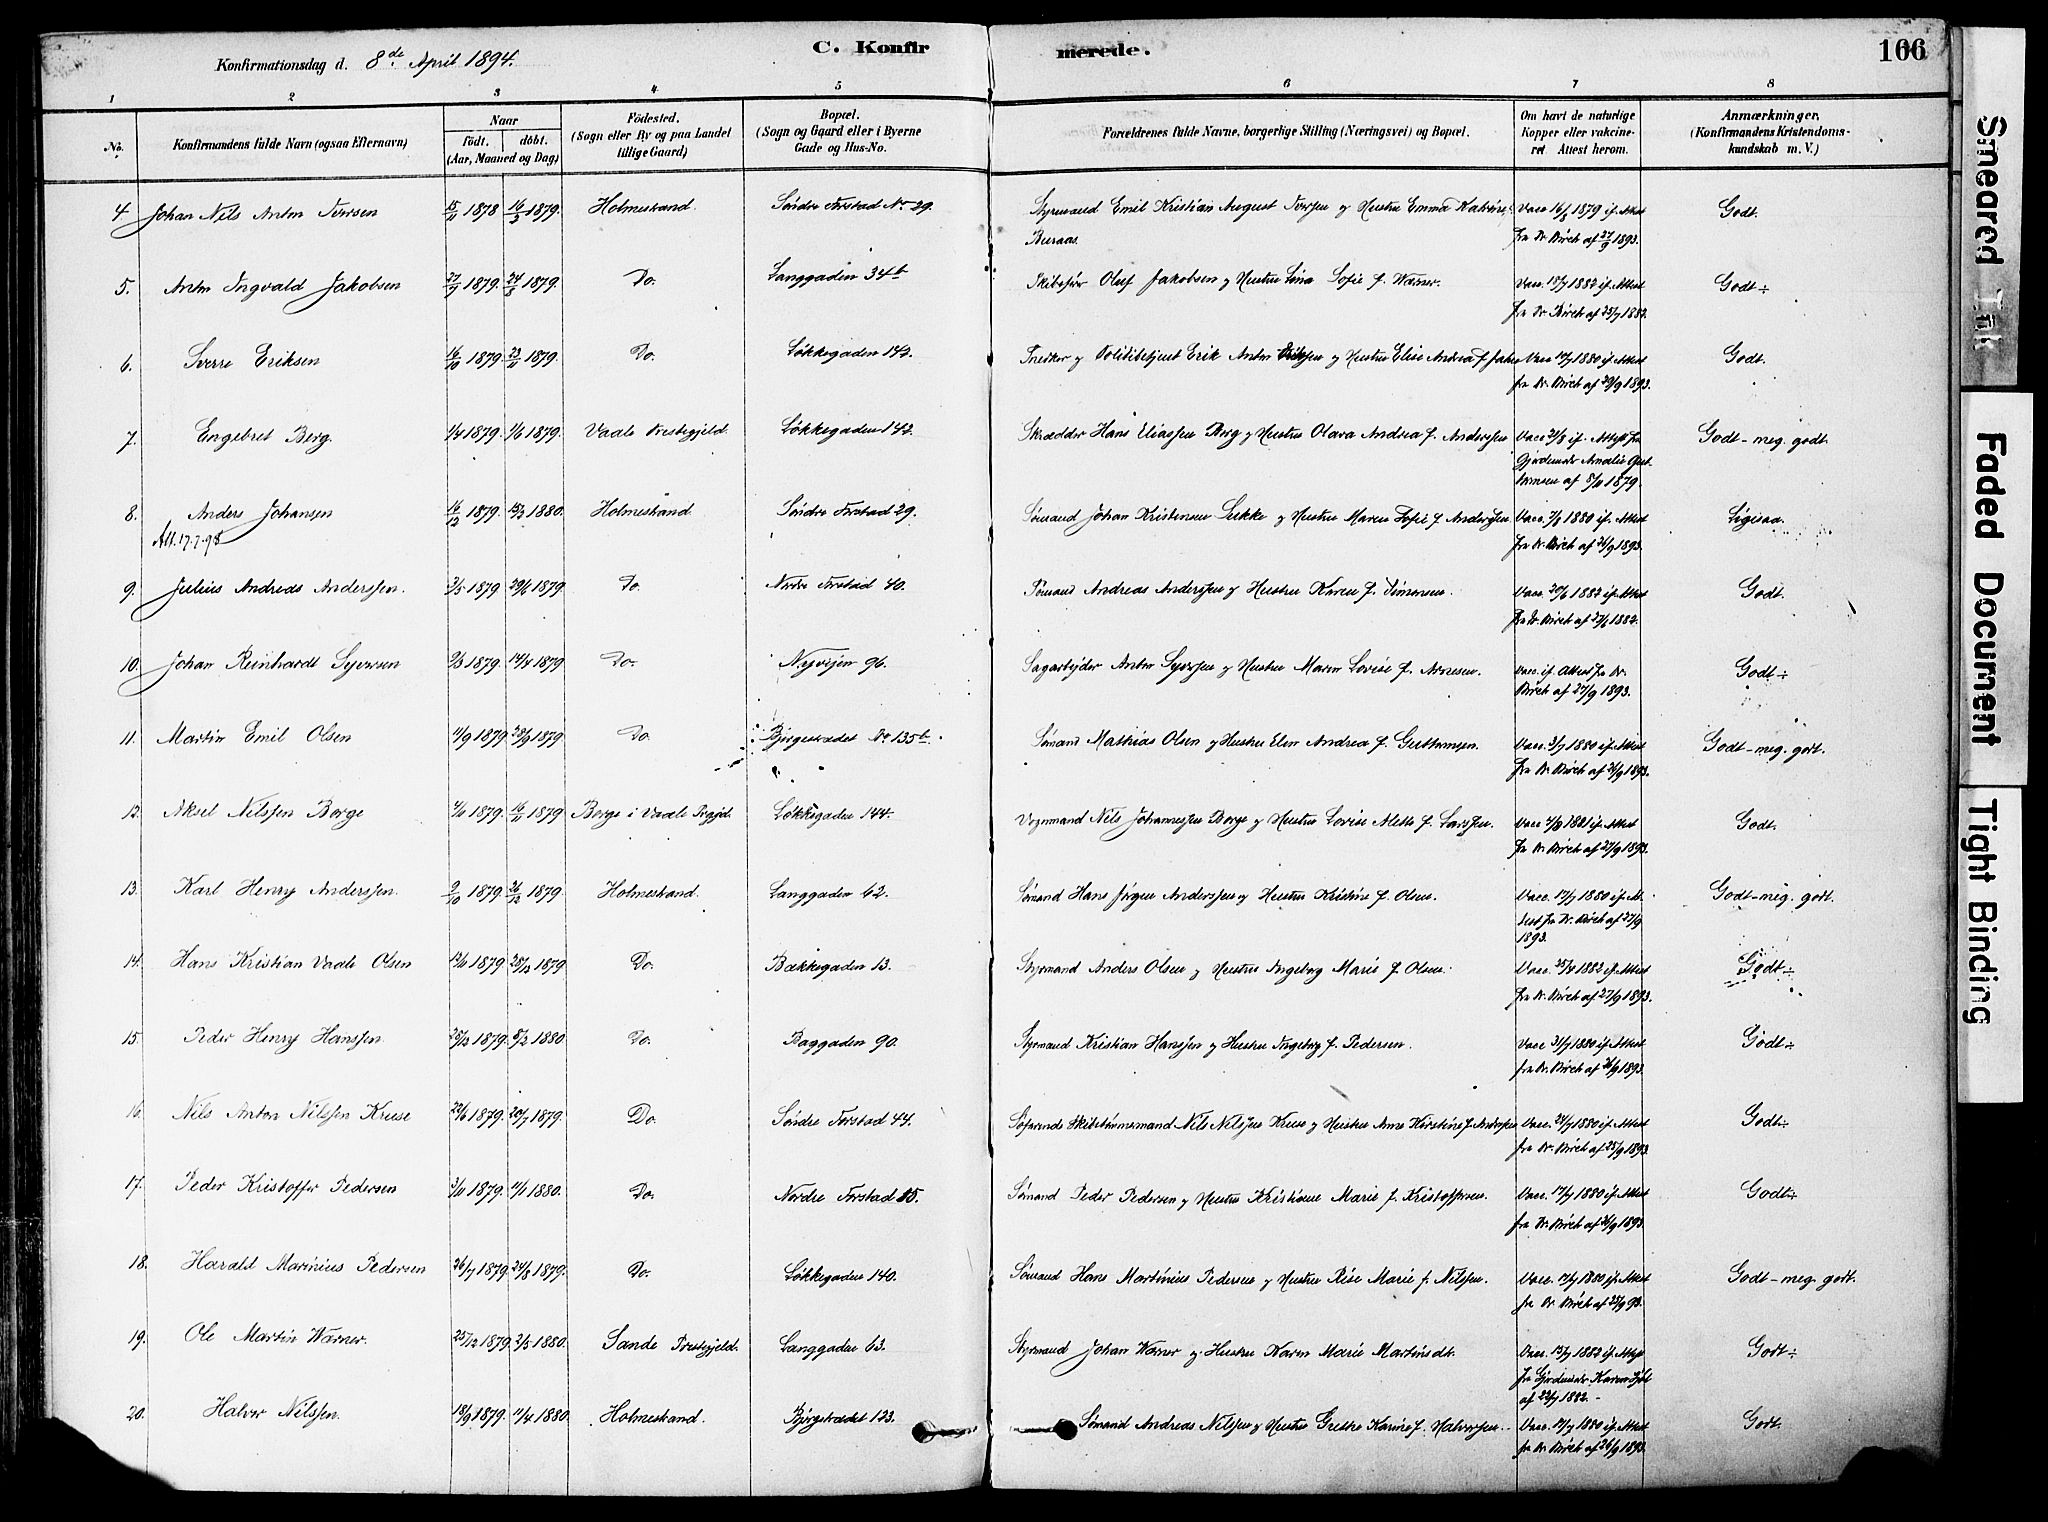 Konfirmationsdag d. 8de April 1894.
C. Konfir
merede.
166
1 2 3 4 5 6 7 8
No. Konfirmandens fulde Navn (ogsaa Efternavn) Naar födt. döbt. (Aar, Maaned og Dag) Födested. (Sogn eller By og paa Landet tillige Gaard) Bopæl. (Sogn og Gaard eller i Byerne Gade og Hus-No. Forældrenes fulde Navne, borgerlige Stilling (Næringsvei) og Bopæl. Om havt de naturlige Kopper eller vakcineret Attest herom. Anmærkninger, (Konfirmandens Kristendomskundskab m. V.)
4. Johan Nils Anton Iversen 15/11 1878 16/3 1879. Holmestrand. Søndre Torstad No 29. Styrmand Emil Kristian August Iversen og Hustru Emma Katrine Vacc 16/8 1879 if. Attest Godt.
Buraas. fra Dr. Birch af 27/9 1893.
5. Anton Ingvald Jakobsen 27/9 1879. 24/8 1879. Do. Langgaden 34b Skibsfør Oluf Jakobsen og Hustru Lina Sofie f. Wærner. Vacc. 18/7 1882 if. Attest Godt ÷
fra Dr. Birch af 25/7 1882.
6. Sverre Eriksen 16/10 1879. 23/11 1879. Do. Løkkegaden 142. Snedker og Politibetjent Erik Anton Eriksen og Hustru Elise Andrea f. Vacc 17/7 1880 if. Attest Godt.
fra Dr. Birch af 29/9 1893.
7. Engebret Berg. 1/4 1879. 1/6 1879. Vaale Prestegjeld. Løkkegaden 142. Skrædder Hans Eliassen Berg og Hustru Olava Andrea f. Anderssen Vacc 21/8 if. Attest fra Godt - meg. godt.
Gjordemoder Amalie
af 5/11 1879.
8. Anders Johansen 16/12 1879. 15/3 1880. Holmestrand Søndre Torstad 29. Sømand Johan Kristensen Lukke og Hustru Maren Sofie f. Anderssen. Vacc. 7/7 1880 if. Attest Ligesaa.
Att. 17.7.98 fra Dr. Birch af 26/9 1893.
9. Julius Andreas Anderssen. 3/5 1879. 29/6 1879. Do. Nordre Torstad 40. Sømand Andreas Anderssen og Hustru Karen f. Simonsen. Vacc. 20/6 1882 if. Attest Godt.
fra Dr. Birch af 27/6 1882.
10. Johan Reinhardt Syversen 9/3 1879. 14/4 1879. Do. Nyvejen 96. Sagarbejder Anton Syversen og Hustru Maren Lovise f. Arnesen. Vacc. if. Attest fra Dr. Godt ÷
Birch af 27/9 1893.
11. Martin Emil Olsen 4/9 1879 28/9 1879 Do. Bjørgestrædet No 135b. Sømand Mathias Olsen og Hustru Elen Andrea f. Guttormsen. Vacc. 3/7 1880 if. Attest Godt - meg. godt.
fra Dr. Birch af 26/9 1893.
12. Aksel Nilssen Borge 4/10 1879 16/11 1879 Borge i Vaale Prgjd. Løkkegaden 144. Vognmand Nils Johannessen Borge og Hustru Lovise Mette f. Larssen. Vacc 4/8 1881 if. Attest Godt.
fra Dr. Birch af 27/9 1893.
13. Karl Henry Anderssen. 9/10 1879. 26/12 1879. Holmestrand. Langgaden 62. Sømand Hans Jørgen Anderssen og Hustru Kristine f. Olsen. Vacc. 17/7 1880 if. At- Godt - meg. godt.
test fra Dr. Birch af 27/9
1893.
14. Hans Kristian Vaale Olsen 12/11 1879 28/12 1879 Do. Bækkegaden 13. Styrmand Anders Olsen og Hustru Ingeborg Marie f. Olsen. Vacc. 25/4 1882 if. Attest Godt ÷
fra Dr. Birch af 27/9 1893.
15. Peder Henry Hanssen 25/12 1879. 8/2 1880. Do. Baggaden 90. Styrmand Kristian Hanssen og Hustru Ingeborg f. Pedersen. Vacc 31/7 1880 if. Attest Godt ÷
fra Dr. Birch af 26/9 1893.
16. Nils Anton Nilssen Kruse 22/6 1879. 20/7 1879. Do. Søndre Torstad 44. Søfarende Skibstømmermand Nils Nilssen Kruse og Hustru Anne Kirstine f. Anderssen Vacc. 24/7 1880 if. Attest Godt ÷
fra Dr. Birch af 25/9 1893.
17. Peder Kristoffer Pedersen 3/11 1879. 1/1 1880. Do. Nordre Torstad 15. Sømand Peder Pedersen og Hustru Kristiane Marie f. Kristoffersen. Vacc. 17/7 1880 if. Attest Godt ÷
fra Dr. Birch af 26/9 1893.
18. Harald Marinius Pedersen 26/7 1879. 24/8 1879. Do. Løkkegaden 140. Sømand Hans Martinius Pedersen og Hustru Rise Marie f. Nilssen. Vacc. 17/7 1880 if. Attest Godt - meg. godt.
fra Dr. Birch af 25/9 93.
19. Ole Martin Wærner. 25/12 1879. 2/5 1880. Sande Prestegjeld. Langgaden 63. Styrmand Johan Wærner og Hustru Karen Marie Martinsdt. Vacc. 15/7 1882 if. Attest Godt ÷
fra Gjordemoder Karen
af 22/7 1882.
20. Halvor Nilssen. 18/9 1879. 11/4 1880. Holmestrand. Bjørgestrædet 123. Sømand Andreas Nilssen og Hustru Grethe Karine f. Halvorsen. Vacc. 17/7 1880 if. Attest Godt.
fra Dr. Birch af 26/9 1893.
Smeared Ink
Faded Document
Tight Binding